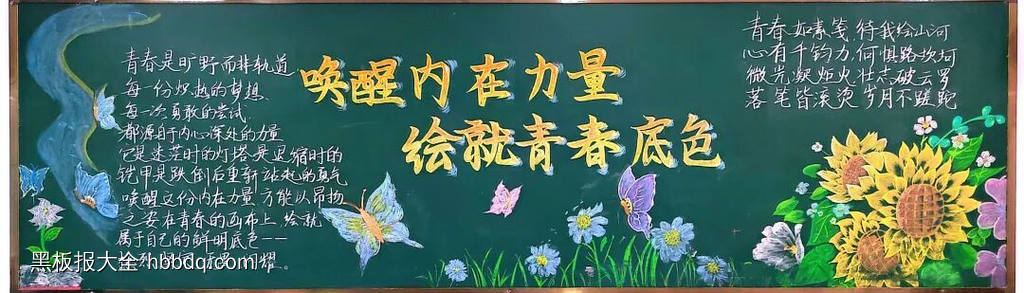 青春是旷野而非轨道
每一份炽热的梦想
每一次勇敢的尝试
都源自于内心深处的力量
它是迷茫时的灯塔是退缩时的
铠甲是跌倒后重新站起的勇气
唤醒这份内在力量方能以昂扬
之姿在青春的画布上绘就
属于自己的鲜明底色——
耀。
唤醒内在力量
绘就青春底色
青春如素笺待我绘山河
心有千钧力何惧路坎坷
微光凝炬火壮志破云罗
落笔皆滚烫岁月不蹉跎
黑板报大全 hbbdq.com